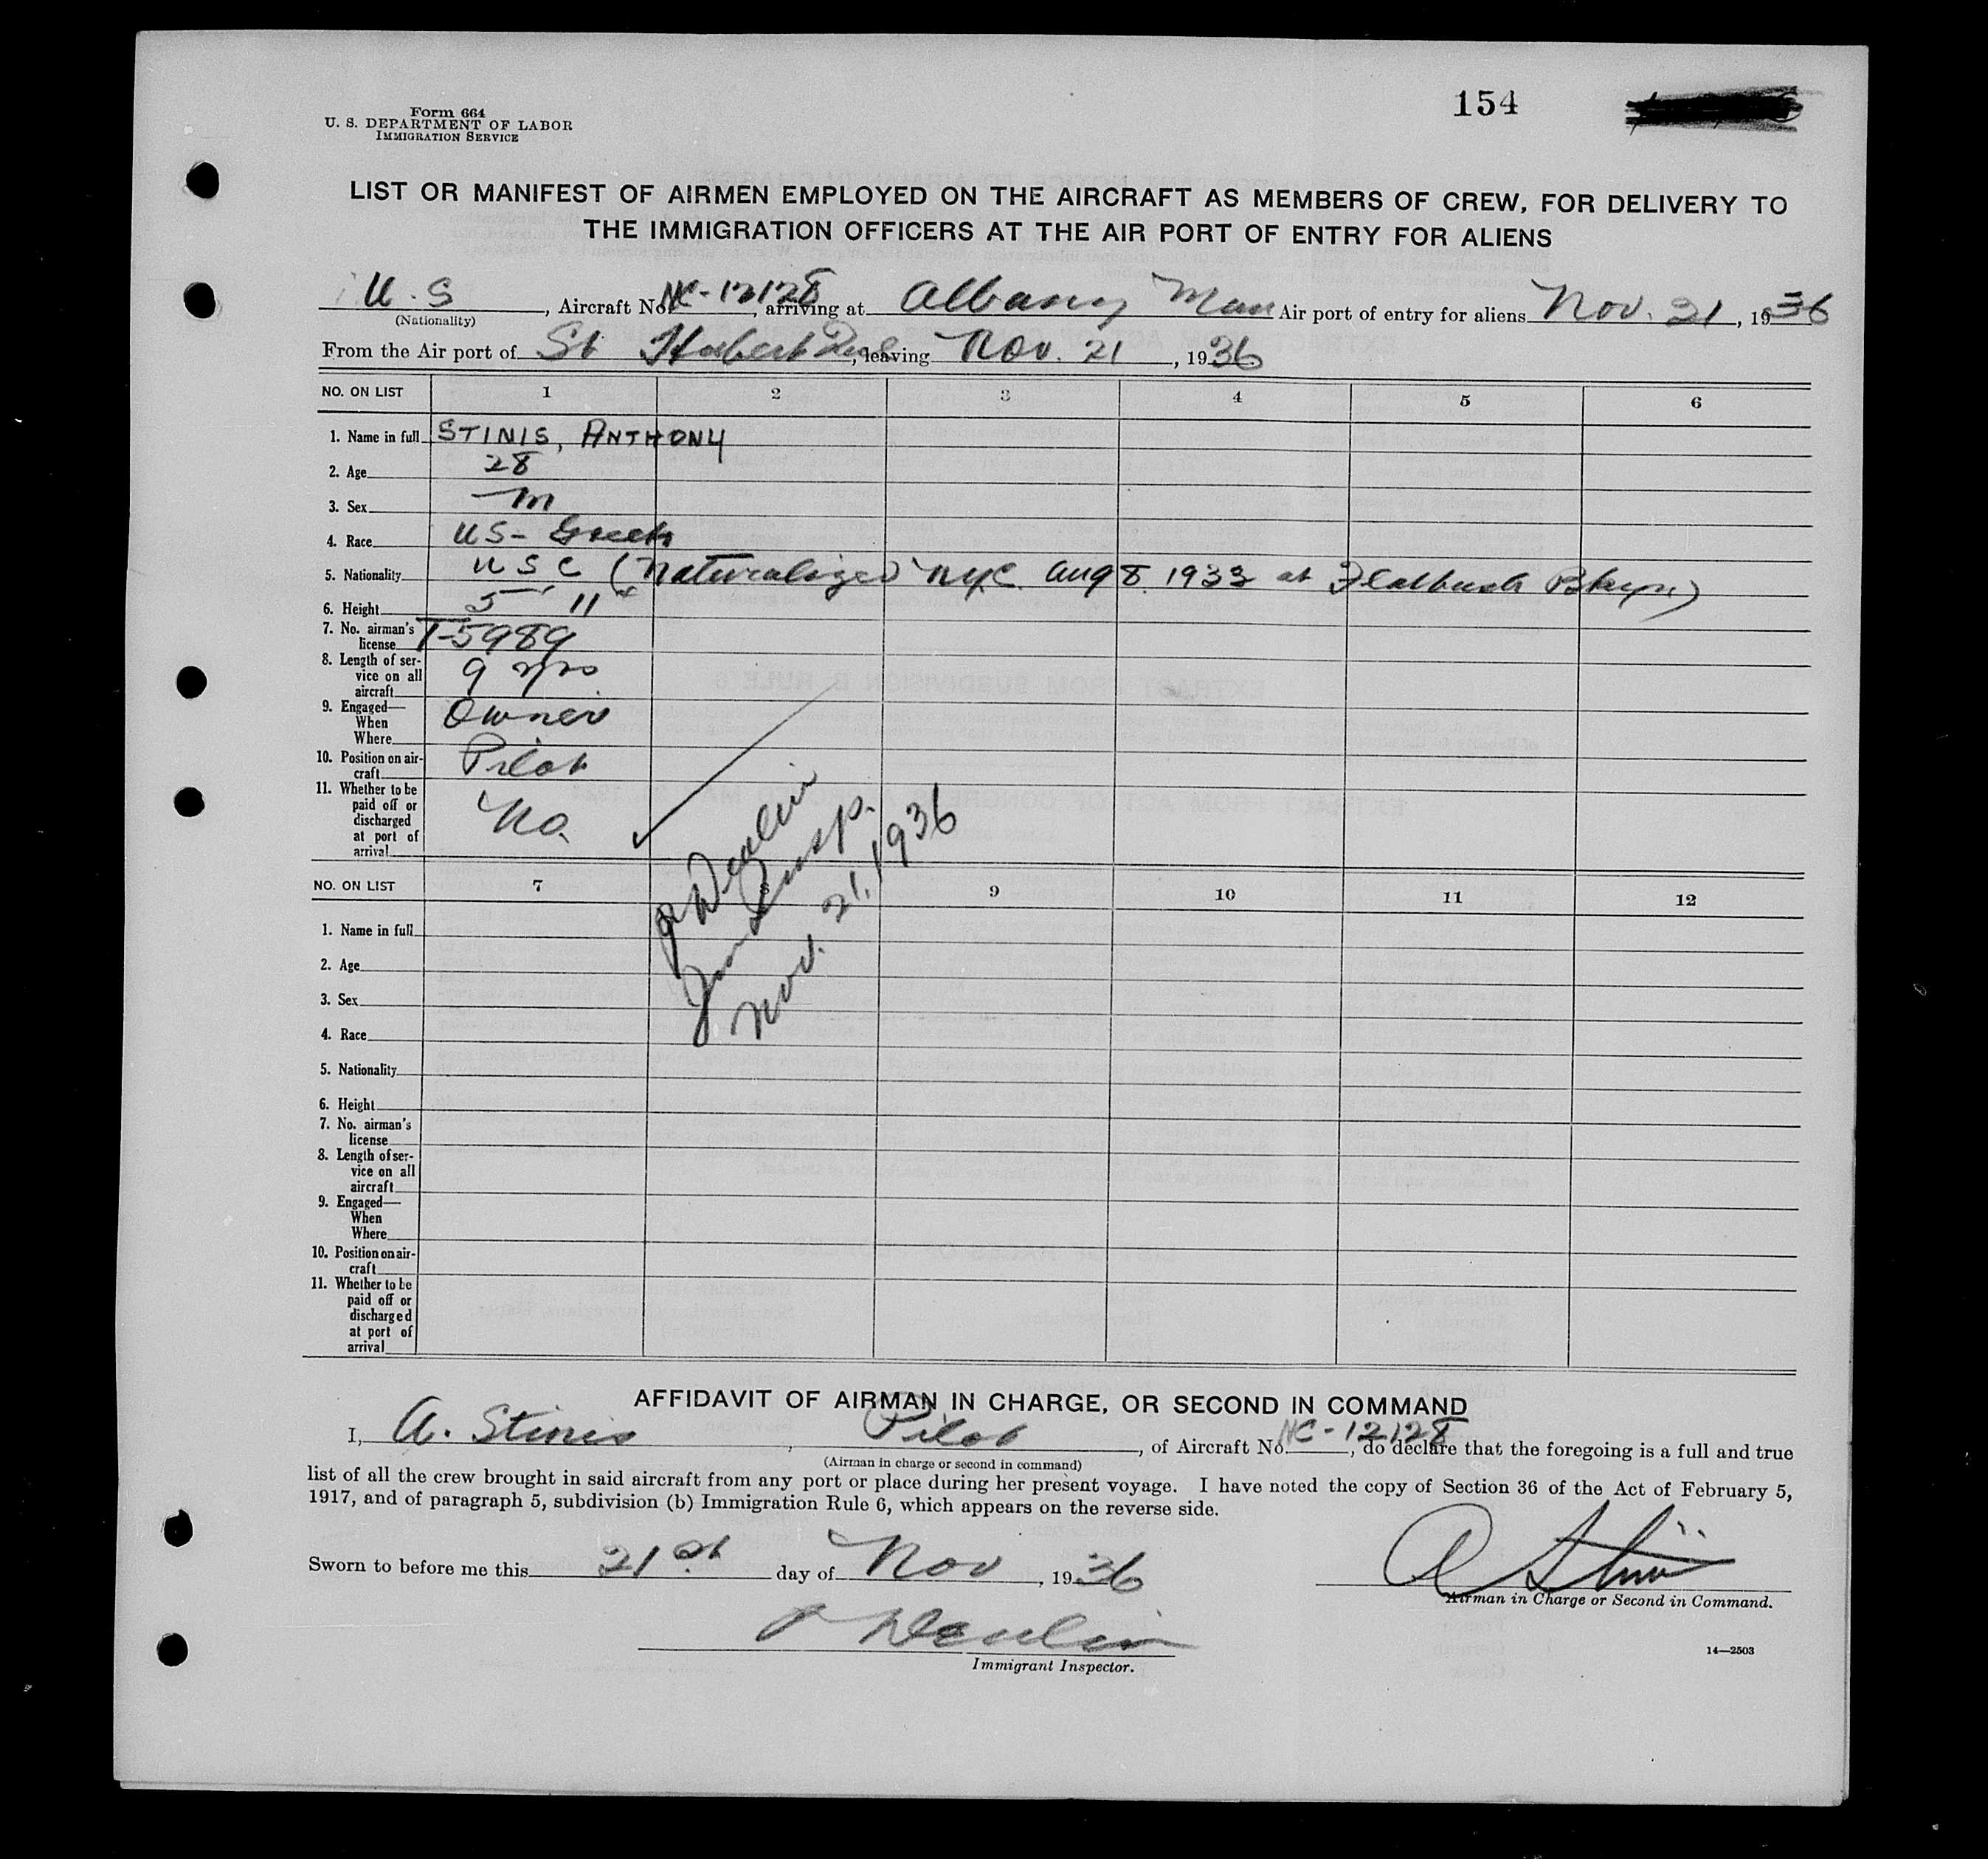 154
Form 664
U. S. DEPARTMENT OF LABOR
IMMIGRATION SERVICE
LIST OR MANIFEST OF AIRMEN EMPLOYED ON THE AIRCRAFT AS MEMBERS OF CREW, FOR DELIVERY TO
THE IMMIGRATION OFFICERS AT THE AIR PORT OF ENTRY FOR ALIENS
U.S, Aircraft No. NC-12128, arriving at Albany Mun Air port of entry for aliens Nov. 21, 1936
(Nationality)
From the Air port of St Hubert Que, leaving Nov. 21, 1936
NO. ON LIST 1 2 3 4 5 6
1. Name in full STINIS, ANTHONY
2. Age 28
3. Sex M
4. Race US- Greek
5. Nationality USC (Naturalized NYC Aug 8 1933 at Flatbush Bklyn)
6. Height 5' 11"
7. No. airman's
license T-5989
8. Length of ser-
vice on all
aircraft 9 yrs.
9. Engaged—
When Owner
Where
10. Position on air-
craft Pilot
11. Whether to be
paid off or
discharged
at port of
arrival No.
Devlin
Imm Insp.
Nov. 21, 1936
NO. ON LIST 7 8 9 10 11 12
1. Name in full
2. Age
3. Sex
4. Race
5. Nationality
6. Height
7. No. airman's
license
8. Length of ser-
vice on all
aircraft
9. Engaged—
When
Where
10. Position on air-
craft
11. Whether to be
paid off or
discharged
at port of
arrival
AFFIDAVIT OF AIRMAN IN CHARGE, OR SECOND IN COMMAND
I, A. Stinis, Pilot, of Aircraft No. NC-12128, do declare that the foregoing is a full and true
(Airman in charge or second in command)
list of all the crew brought in said aircraft from any port or place during her present voyage. I have noted the copy of Section 36 of the Act of February 5,
1917, and of paragraph 5, subdivision (b) Immigration Rule 6, which appears on the reverse side.
Sworn to before me this 21st day of Nov, 1936
A Stinis
Airman in Charge or Second in Command.
Devlin
Immigrant Inspector.
14—2503